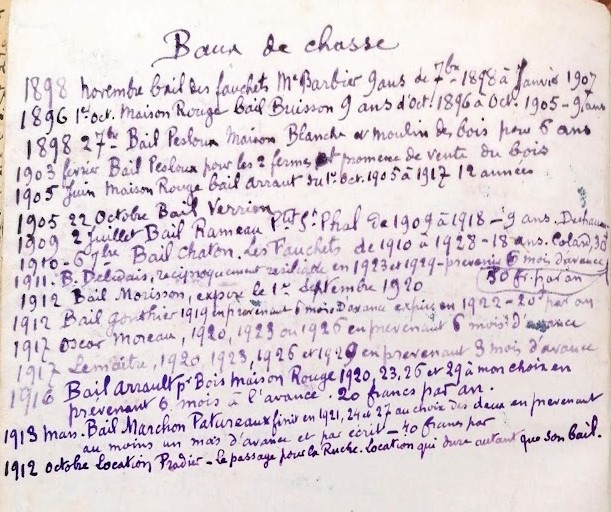 Baux de chasse
1898 novembre bail des fauchets Mr Barbier 9 ans de 7bre 1898 à Janvier 1907
1896 1er oct. Maison Rouge bail Buisson 9 ans d'oct. 1896 à Oct. 1905 - 9 ans
1898 27bre Bail Pesloux Maison Blanche et moulin des bois pour 6 ans
1903 février Bail Pesloux pour les 2 fermes et promesse de vente du bois
1905 Juin Maison Rouge bail arraut du 1er oct. 1905 à 1917 12 années
1905 22 Octobre Bail Verrier
1909 2 Juillet Bail Rameau Ptit St Phal de 1909 à 1918 - 9 ans.
1910 - 6 7bre Bail Chaton. Les Fauchets de 1910 à 1928 - 18 ans. Colard, 30
1911. B. Delidais, réciproquement résiliable en 1923 et 1929 - prévenir 6 mois d'avance
1912 Bail Morisson, expire le 1er septembre 1920 50 fr. par an
1912 Bail Gonthier 1919 en prevenant 6 mois d'avance expire en 1922 - 20f par an
1917 Oscar Moreau, 1920, 1923 ou 1926 en prevenant 6 mois d'avance
1917 Lemaître, 1920, 1923, 1926 et 1929 en prevenant 3 mois d'avance
1916 Bail Arrault pr Bois Maison Rouge 1920, 23, 26 et 29 à mon choix en
prevenant 6 mois à l'avance. 20 francs par an.
1913 mars. Bail Marchon Patureaux finit en 1921, 24 et 27 au choix des deux en prevenant
au moins un mois d'avance et par écrit - 40 francs par
1912 octobre Location Pradier - le passage pour la Ruche. Location qui dure autant que son bail.